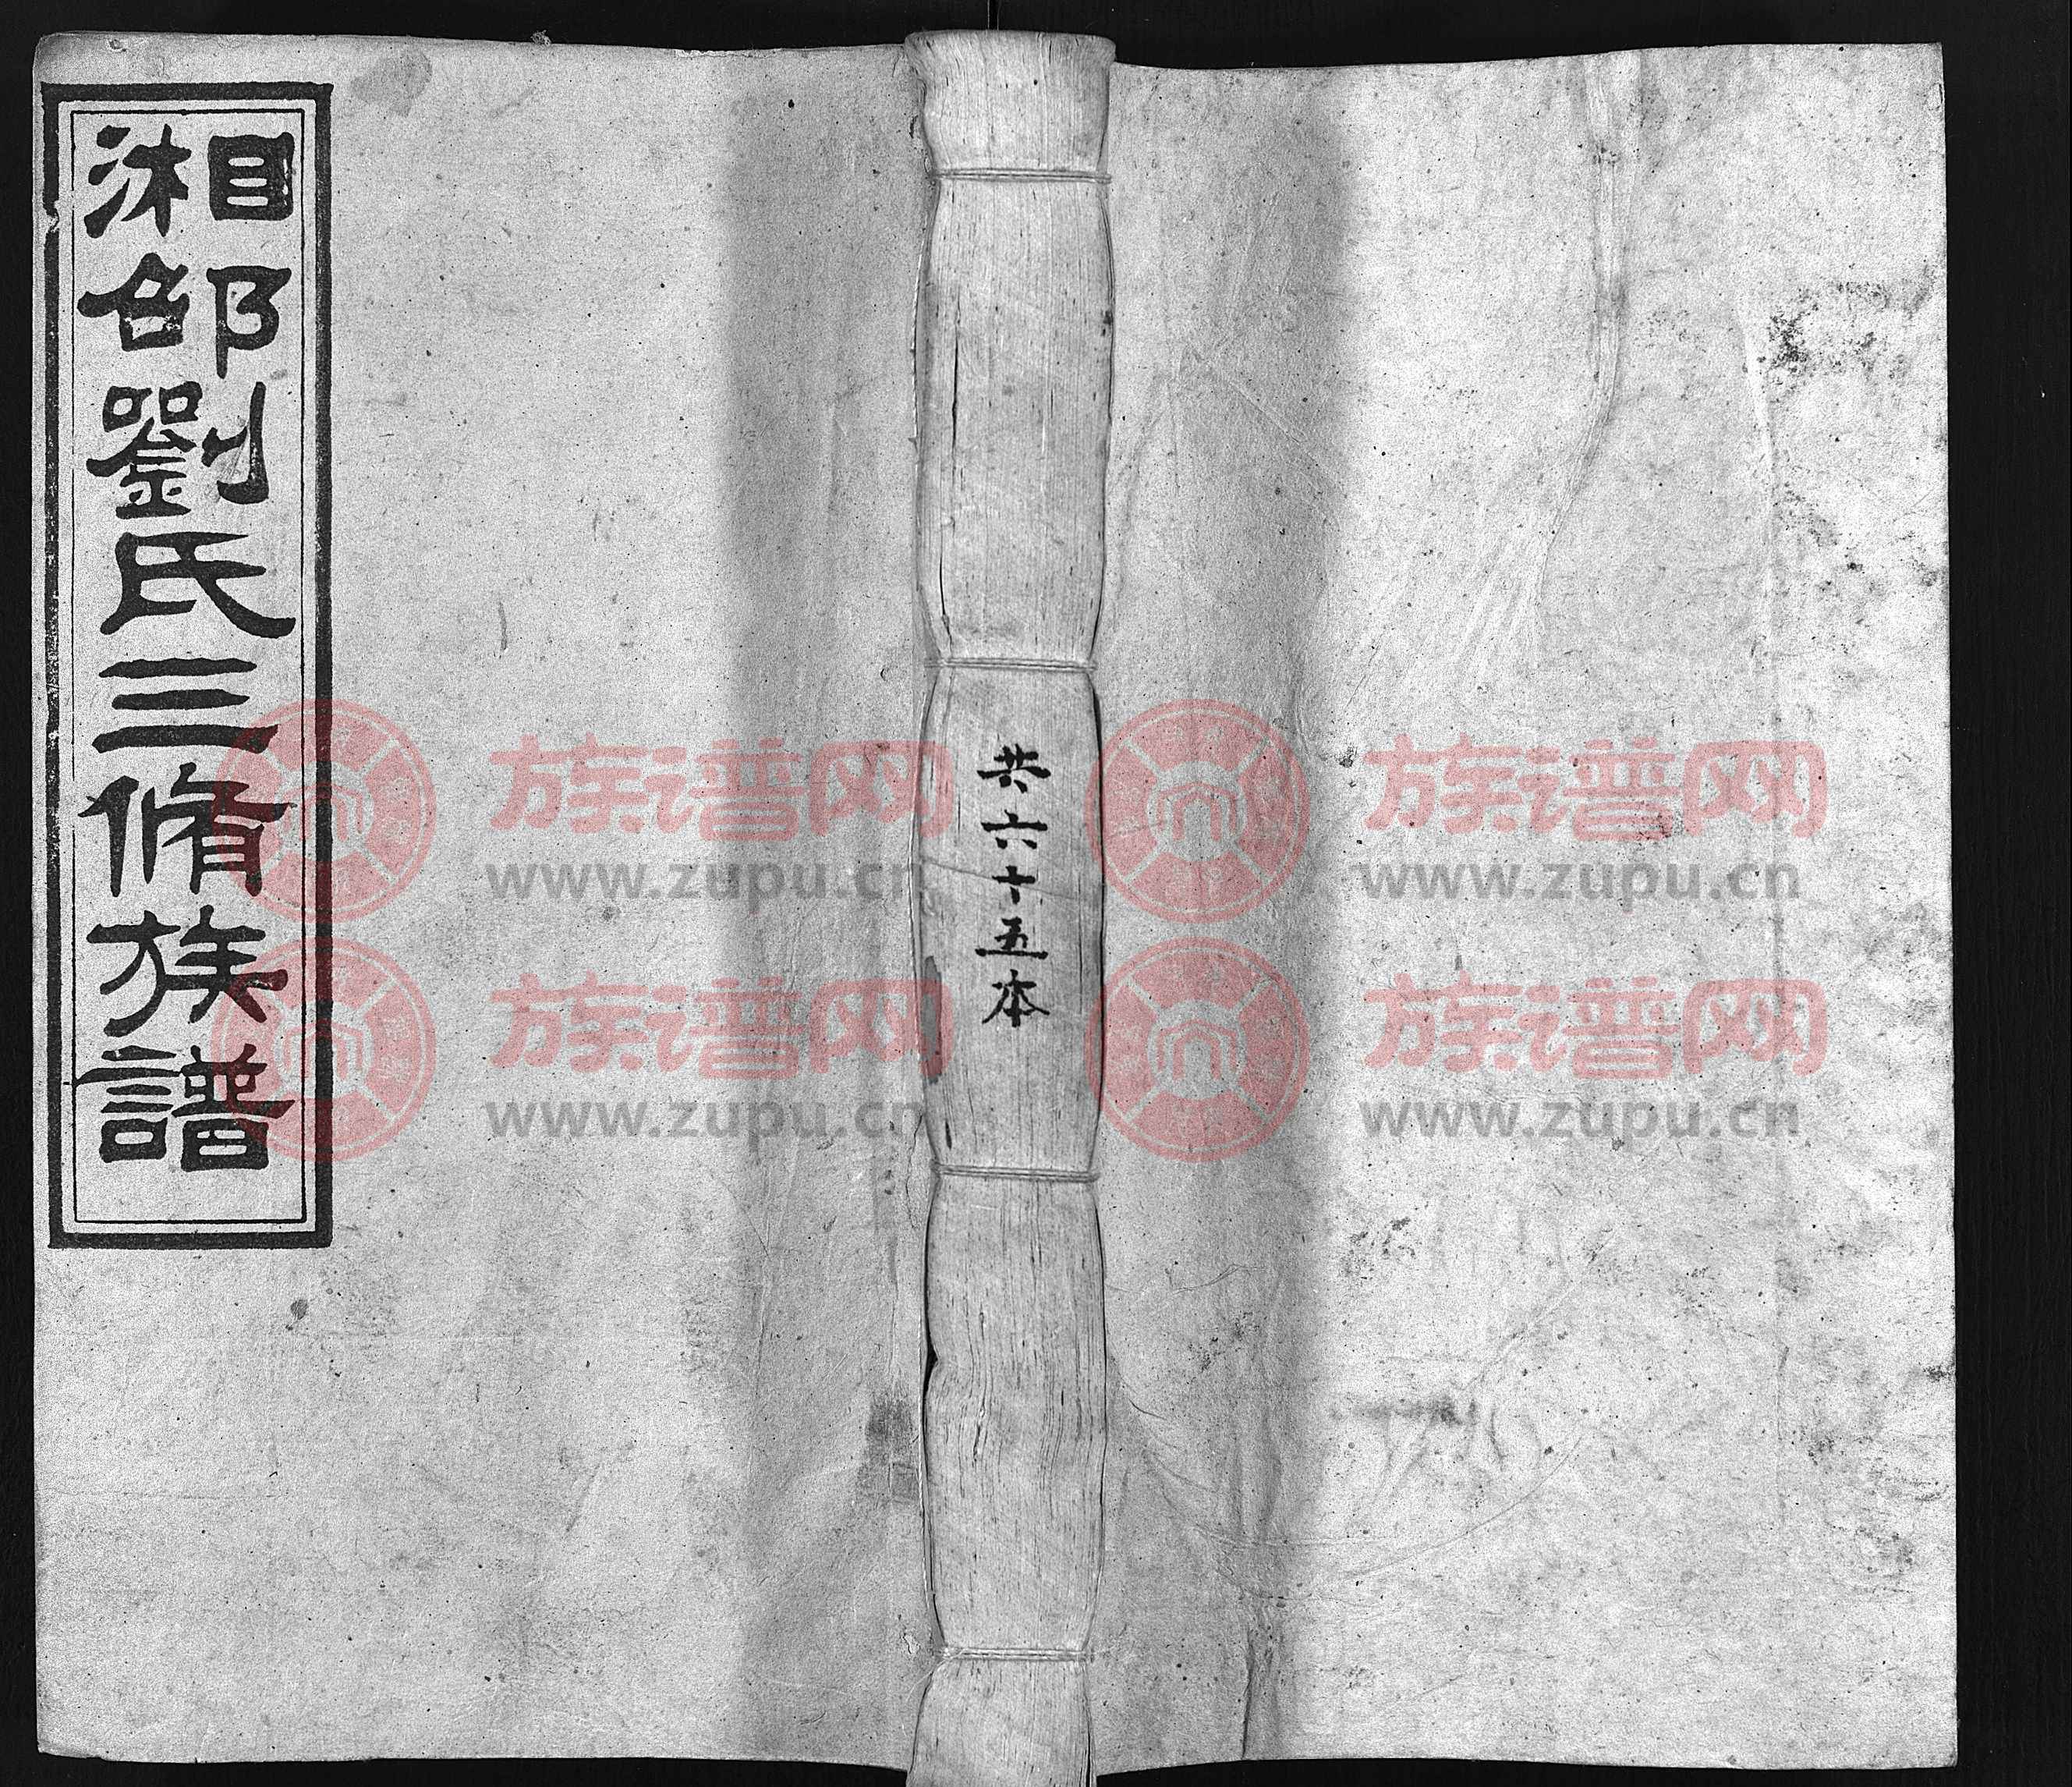 湘邵劉氏三脩族譜
共六十五本
族谱网
www.zupu.cn
族谱网
www.zupu.cn
族谱网
www.zupu.cn
族谱网
www.zupu.cn